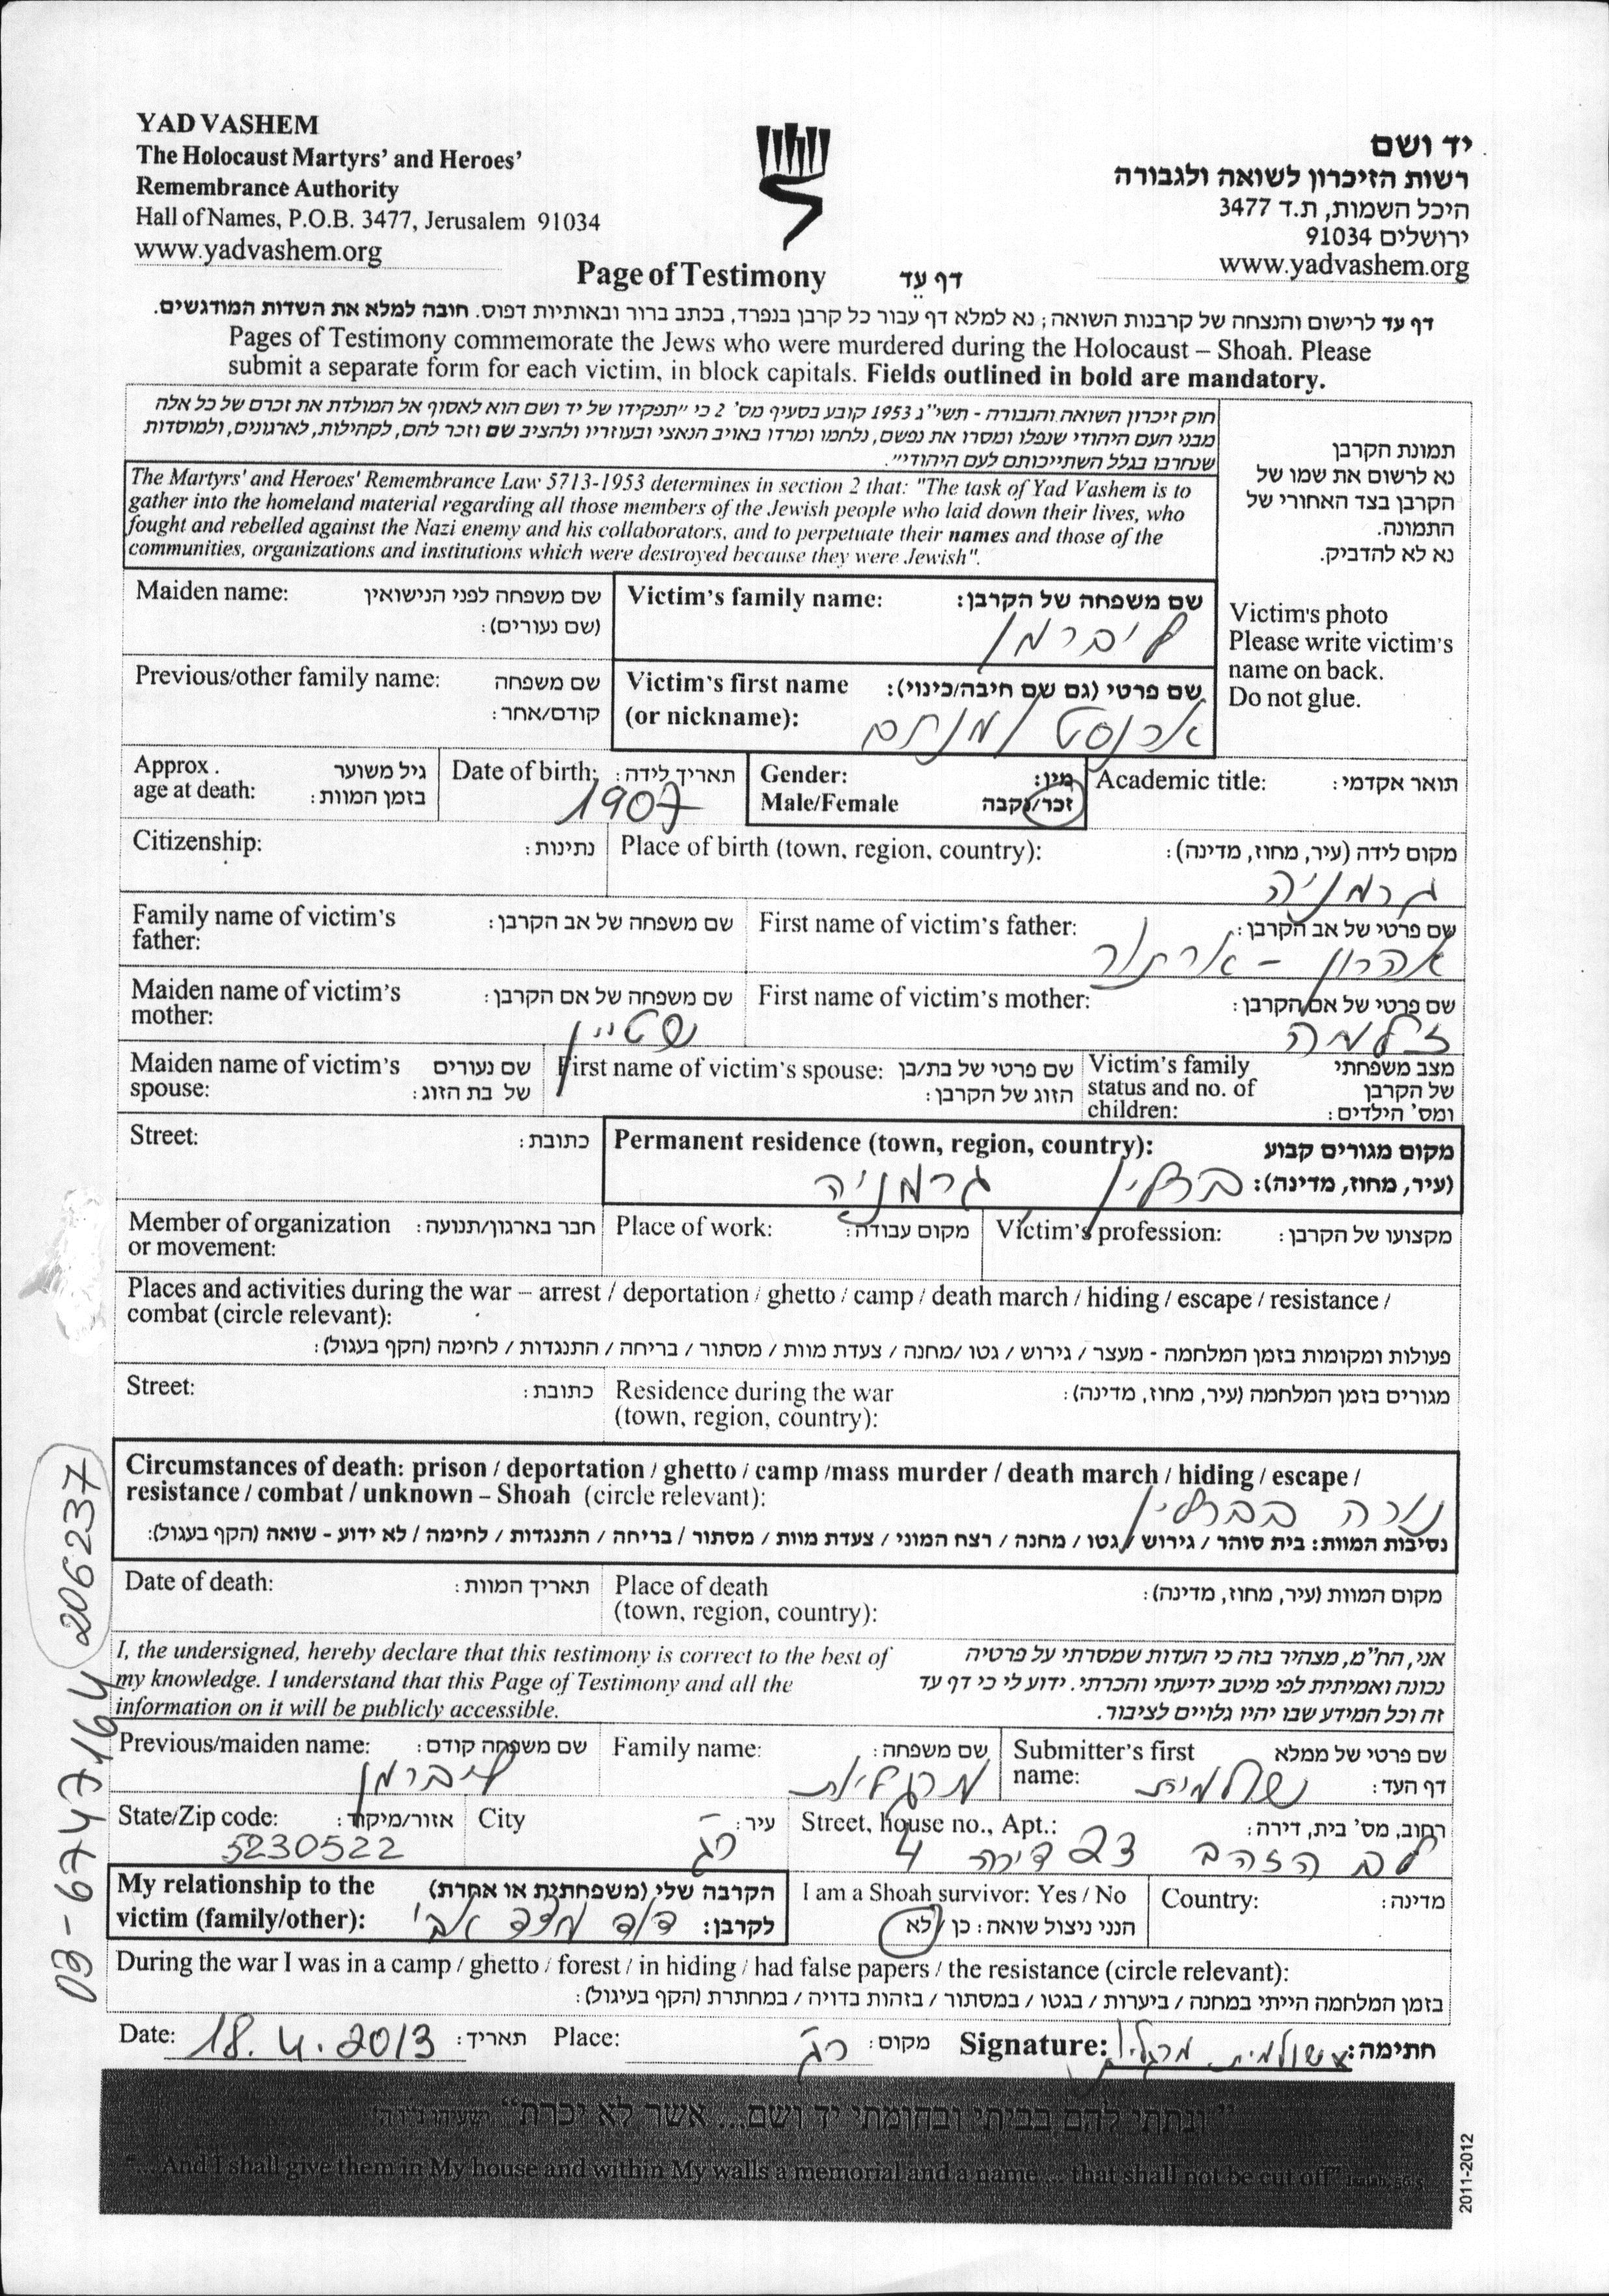 YAD VASHEM
The Holocaust Martyrs' and Heroes'
Remembrance Authority
Hall of Names, P.O.B. 3477, Jerusalem 91034
www.yadvashem.org
יד ושם
רשות הזיכרון לשואה ולגבורה
היכל השמות, ת.ד 3477
ירושלים 91034
www.yadvashem.org
Page of Testimony דף עֵד
דף עד לרישום והנצחה של קרבנות השואה; נא למלא דף עבור כל קרבן בנפרד, בכתב ברור ובאותיות דפוס. חובה למלא את השדות המודגשים.
Pages of Testimony commemorate the Jews who were murdered during the Holocaust – Shoah. Please
submit a separate form for each victim, in block capitals. Fields outlined in bold are mandatory.
חוק זיכרון השואה והגבורה - תשי"ג 1953 קובע בסעיף מס' 2 כי "תפקידו של יד ושם הוא לאסוף אל המולדת את זכרם של כל אלה
מבני העם היהודי שנפלו ומסרו את נפשם, נלחמו ומרדו באויב הנאצי ובעוזריו ולהציב שם וזכר להם, לקהילות, לארגונים, ולמוסדות
שנחרבו בגלל השתייכותם לעם היהודי".
The Martyrs' and Heroes' Remembrance Law 5713-1953 determines in section 2 that: "The task of Yad Vashem is to
gather into the homeland material regarding all those members of the Jewish people who laid down their lives, who
fought and rebelled against the Nazi enemy and his collaborators, and to perpetuate their names and those of the
communities, organizations and institutions which were destroyed because they were Jewish".
תמונת הקרבן
נא לרשום את שמו של
הקרבן בצד האחורי של
התמונה.
נא לא להדביק.
Victim's photo
Please write victim's
name on back.
Do not glue.
Maiden name: שם משפחה לפני הנישואין
(שם נעורים):
Victim's family name: שם משפחה של הקרבן:
ליברמן
Previous/other family name: שם משפחה
קודם/אחר:
Victim's first name שם פרטי (גם שם חיבה/כינוי):
(or nickname):
ארנסט / מנחם
Approx. גיל משוער
age at death: בזמן המוות:
Date of birth: תאריך לידה:
1907
Gender: מין:
Male/Female זכר/נקבה
Academic title: תואר אקדמי:
Citizenship: נתינות:
Place of birth (town, region, country): מקום לידה (עיר, מחוז, מדינה):
גרמניה
Family name of victim's שם משפחה של אב הקרבן:
father:
First name of victim's father: שם פרטי של אב הקרבן:
אהרון - ארתור
Maiden name of victim's שם משפחה של אם הקרבן:
mother:
שטיין
First name of victim's mother: שם פרטי של אם הקרבן:
זלמה
Maiden name of victim's שם נעורים
spouse: של בת הזוג:
First name of victim's spouse: שם פרטי של בת/בן
הזוג של הקרבן:
Victim's family מצב משפחתי
status and no. of של הקרבן
children: ומס' הילדים:
Street: כתובת:
Permanent residence (town, region, country): מקום מגורים קבוע
(עיר, מחוז, מדינה):
ברלין גרמניה
Member of organization חבר בארגון/תנועה:
or movement:
Place of work: מקום עבודה:
Victim's profession: מקצועו של הקרבן:
Places and activities during the war – arrest / deportation / ghetto / camp / death march / hiding / escape / resistance /
combat (circle relevant):
פעולות ומקומות בזמן המלחמה - מעצר / גירוש / גטו /מחנה / צעדת מוות / מסתור / בריחה / התנגדות / לחימה (הקף בעגול):
Street: כתובת:
Residence during the war מגורים בזמן המלחמה (עיר, מחוז, מדינה):
(town, region, country):
Circumstances of death: prison / deportation / ghetto / camp /mass murder / death march / hiding / escape /
resistance / combat / unknown – Shoah (circle relevant):
נורה בברלין
נסיבות המוות: בית סוהר / גירוש / גטו / מחנה / רצח המוני / צעדת מוות / מסתור / בריחה / התנגדות / לחימה / לא ידוע - שואה (הקף בעגול):
Date of death: תאריך המוות:
Place of death מקום המוות (עיר, מחוז, מדינה):
(town, region, country):
I, the undersigned, hereby declare that this testimony is correct to the best of
my knowledge. I understand that this Page of Testimony and all the
information on it will be publicly accessible.
אני, הח"מ, מצהיר בזה כי העדות שמסרתי על פרטיה
נכונה ואמיתית לפי מיטב ידיעתי והכרתי. ידוע לי כי דף עד
זה וכל המידע שבו יהיו גלויים לציבור.
Previous/maiden name: שם משפחה קודם:
ליברמן
Family name: שם משפחה:
מרגלית
Submitter's first שם פרטי של ממלא
name: דף העד:
שולמית
State/Zip code: אזור/מיקוד:
5230522
City עיר:
רג
Street, house no., Apt.: רחוב, מס' בית, דירה:
לב הזהב 23 דירה 4
My relationship to the הקרבה שלי (משפחתית או אחרת)
victim (family/other): לקרבן:
דוד מצד אבי
I am a Shoah survivor: Yes / No
הנני ניצול שואה: כן / לא
Country: מדינה:
During the war I was in a camp / ghetto / forest / in hiding / had false papers / the resistance (circle relevant):
בזמן המלחמה הייתי במחנה / ביערות / בגטו / במסתור / בזהות בדויה / במחתרת (הקף בעיגול):
Date: 18.4.2013 תאריך:
Place: רג מקום:
Signature: שולמית מרגלית חתימה:
"ונתתי להם בביתי ובחומתי יד ושם... אשר לא יכרת" ישעיהו נ"ו ה'
"...And I shall give them in My house and within My walls a memorial and a name... that shall not be cut off" Isaiah, 56:5
2011-2012
03-6747164 206237